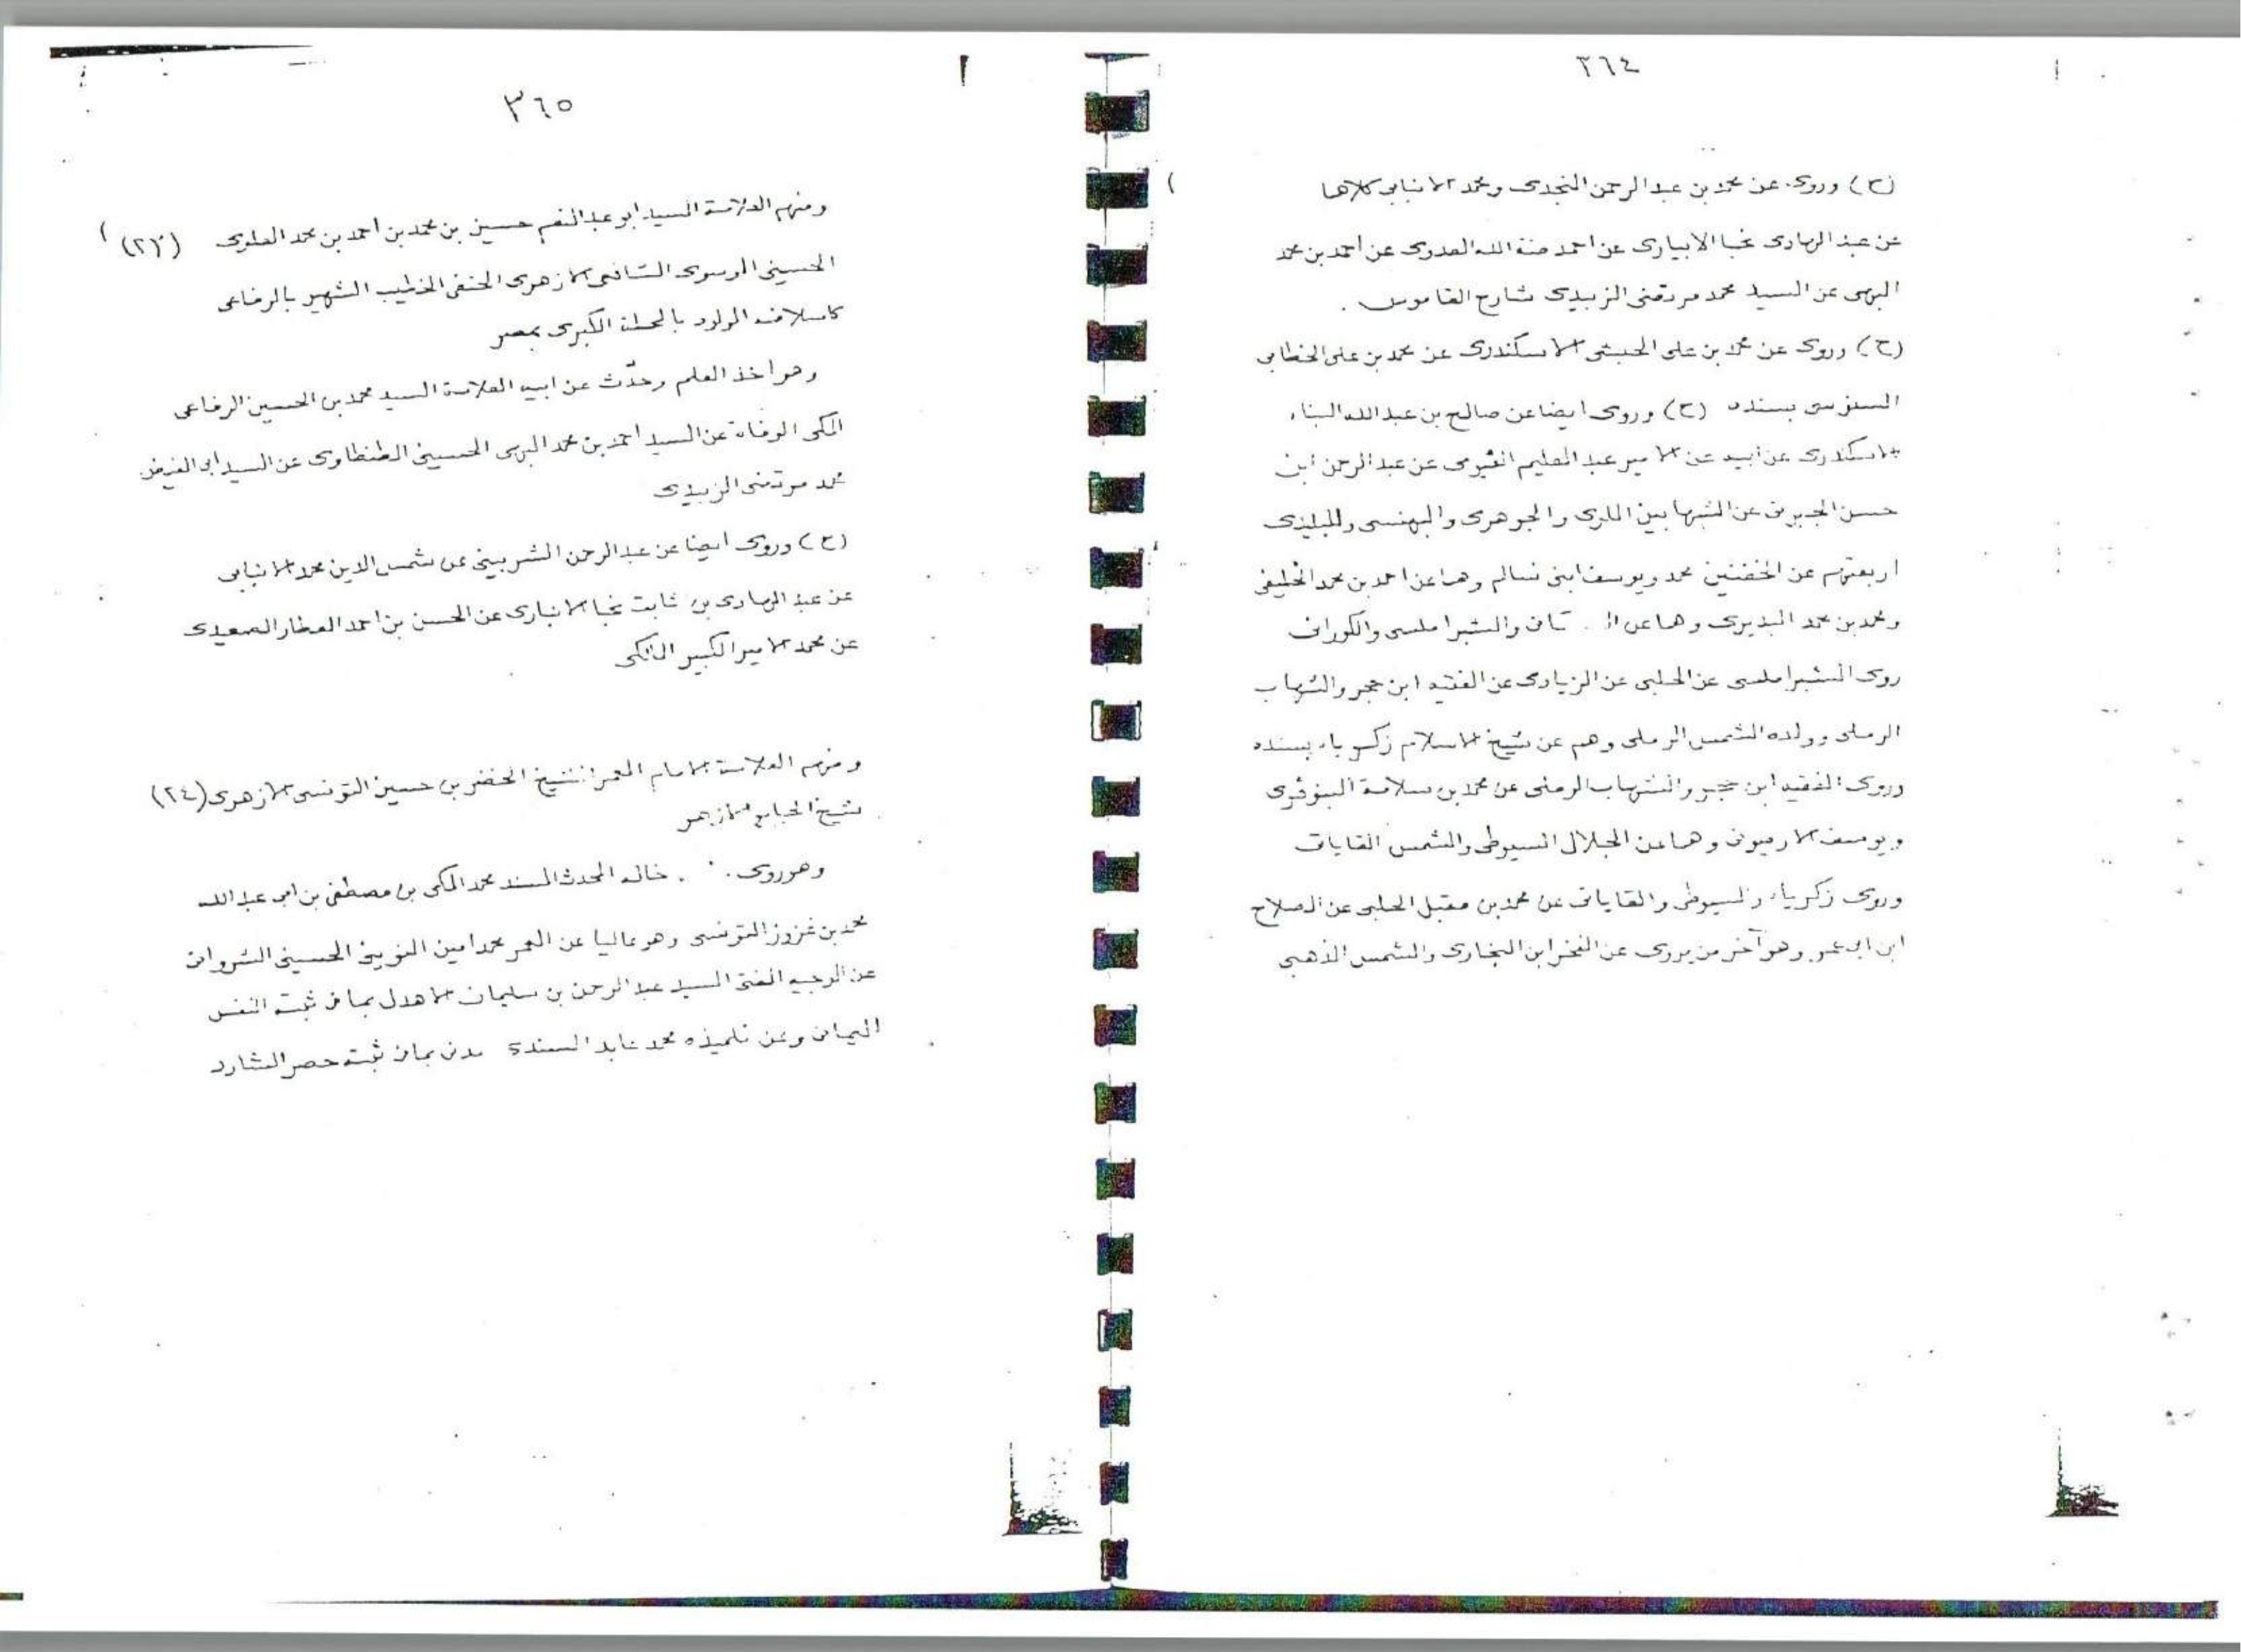 ٣٦٤
(ح) وروى عن محمد بن عبد الرحمن النجدى ومحمد الانبابى كلاهما
عن عبد الهادى نجا الابيارى عن احمد منة الله العدوى عن احمد بن محمد
البهى عن السيد محمد مرتضى الزبيدى شارح القاموس .
(ح) وروى عن محمد بن على الحبشى الاسكندرى عن محمد بن على الخطابى
السنوسى بسنده (ح) وروى ايضا عن صالح بن عبد الله البناء
الاسكندرى عن ابيه عن الامير عبد العليم الفيومى عن عبد الرحمن ابن
حسن الجبرتى عن الشهابين الملوى والجوهرى والبهنسى والبليدى
اربعتهم عن الحفنيين محمد ويوسف ابنى سالم وهما عن احمد بن محمد الخليفى
ومحمد بن محمد البديرى وهما عن والشبراملسى والكورانى
روى الشبراملسى عن الحلبى عن الزيادى عن الفقيه ابن حجر والشهاب
الرملى وولده الشمس الرملى وهم عن شيخ الاسلام زكرياء بسنده
وروى الفقيه ابن حجر والشهاب الرملى عن محمد بن سلامة البنوفرى
ويوسف الارميونى وهما عن الجلال السيوطى والشمس القاياتى
وروى زكرياء والسيوطى والقاياتى عن محمد بن مقبل الحلبى عن الصلاح
ابن ابى عمر وهو آخر من يروى عن الفخر ابن البخارى والشمس الذهبى
٣٦٥
ومنهم العلامة السيد ابو عبد النعيم حسين بن محمد بن احمد بن محمد العلوى (٢٣)
الحسينى الموسوى الشافعى الازهرى الحنفى الخطيب الشهير بالرفاعى
كاسلافه المولود بالمحلة الكبرى بمصر
وهو اخذ العلم وحدّث عن ابيه العلامة السيد محمد بن الحسين الرفاعى
المكى الوفاة عن السيد احمد بن محمد البهى الحسينى الطنطاوى عن السيد ابى الفيض
محمد مرتضى الزبيدى
(ح) وروى ايضا عن عبد الرحمن الشربينى عن شمس الدين محمد الانبابى
عن عبد الهادى بن ثابت نجا الانبارى عن الحسن بن احمد العطار الصعيدى
عن محمد الامير الكبير المالكى
ومنهم العلامة الامام المعمر الشيخ الخضر بن حسين التونسى الازهرى (٢٤)
شيخ الجامع الازهر
وهو روى . خاله المحدث المسند محمد المكى بن مصطفى بن ابى عبد الله
محمد بن عزوز التونسى وهو عاليا عن المعمر محمد امين الحسينى الشروانى
عن الوجيه المفتى السيد عبد الرحمن بن سليمان الاهدل بما فى ثبته النفس
اليمانى وعن تلميذه محمد عابد السندى بما فى ثبته حصر الشارد